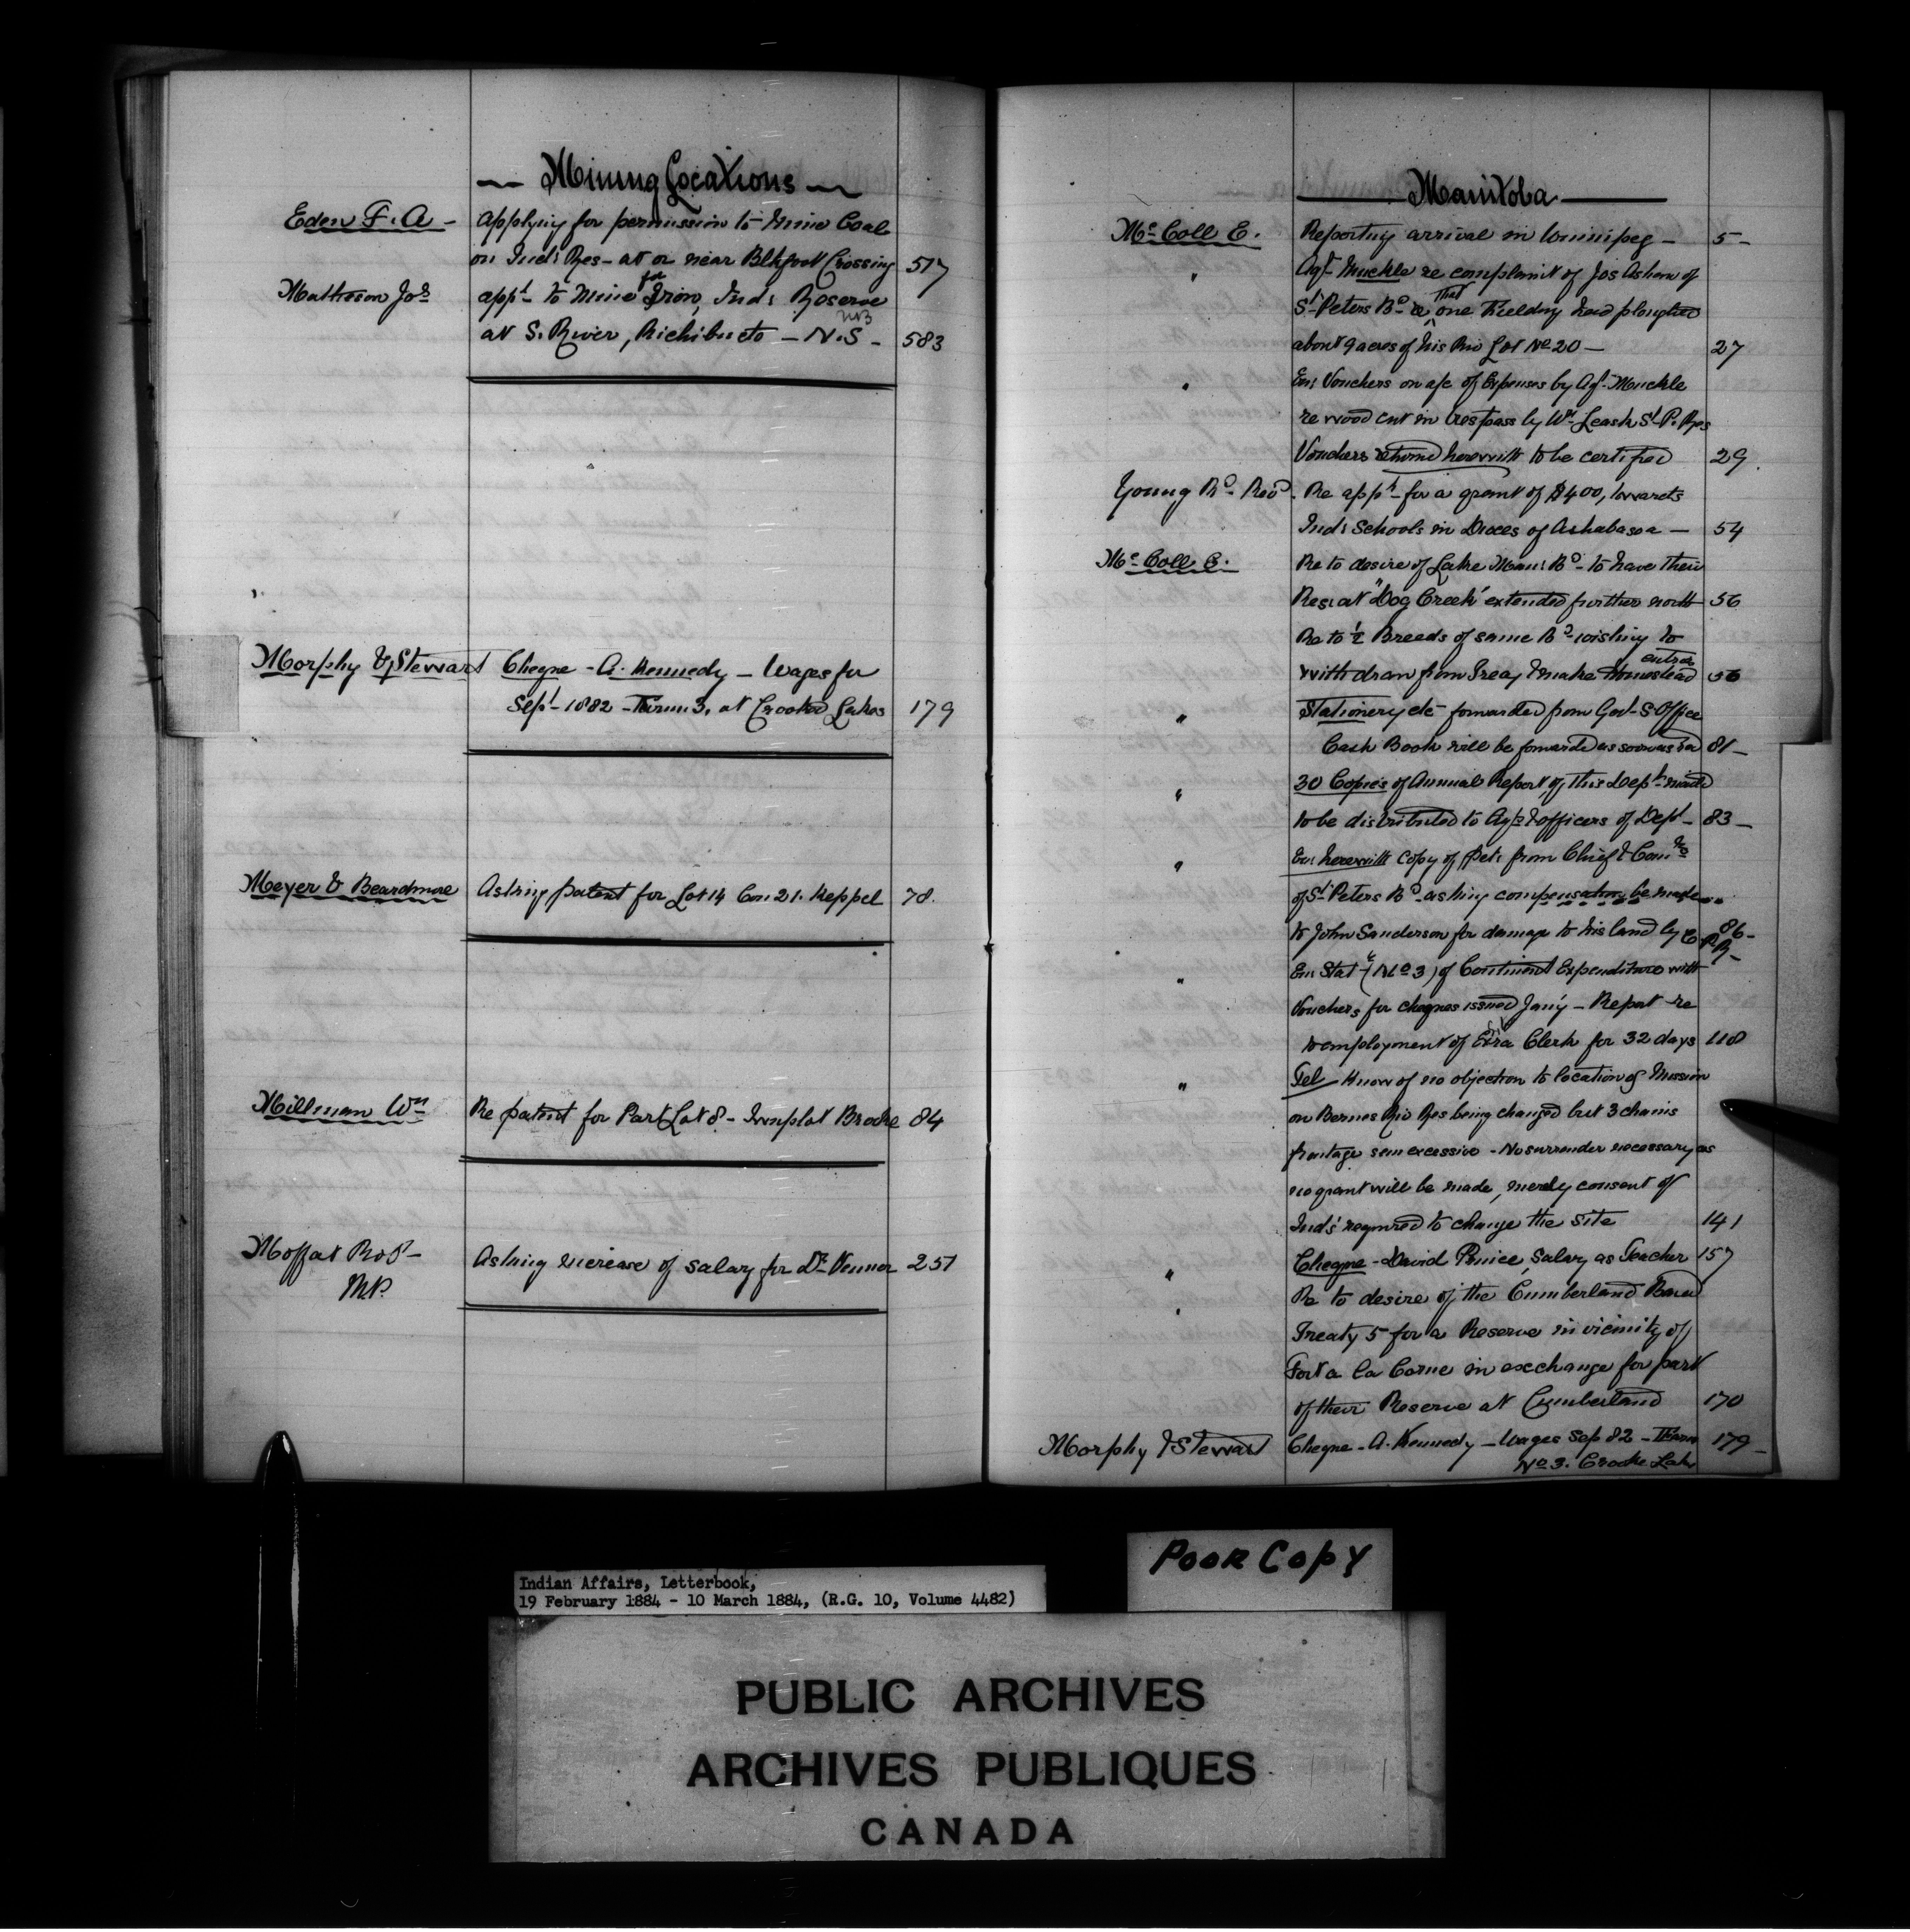 Mining Locations
Eden F. A - Applying for permission to mine Coal
on Inds Res - at or near Blkfoot Crossing 517
Matheson Jos appt to mine for Iron, Inds Reserve
NB
at S. River, Richibucto - N.S - 583
Morphy & Stewart Cheque - A. Kennedy - Wages for
Sept - 1882 - Farm 3, at Crooked Lakes 179
Meyer & Beardmore Asking patent for Lot 14 Con 21. Keppel 78.
Millman Wm Re patent for Part Lot 8 - Brooke 84
Moffat Robt - Asking increase of salary for Dr Venner 251
M.P.
Manitoba
McColl E. Reporting arrival in Winnipeg - 5 -
" Agt Muckle re complaint of Jos Asham of
St Peters Bd that one Fielding had ploughed
about 9 acres of his Riv Lot No 20 - 27
" Enc Vouchers on a/c of Expenses by Agt Muckle
re wood cut in trespass by Wm Leask St P. Res
Vouchers returned herewith to be certified 29.
Young Rd Revd. Re appt for a grant of $400, towards
Inds Schools in Dioces of Athabasca - 54
McColl E. Re to desire of Lake Man: Bd - to have their
Res: at "Dog Creek" extended further north 56
Re to ½ Breeds of same Bd wishing to
entries
withdraw from Treaty & make Homestead 56
" Stationery etc forwarded from Govt S. Office
Cash Book will be forwarded as soon as 81 -
" 30 Copies of Annual Report of this Dept mailed
to be distributed to Agts & officers of Dept - 83 -
" Enc herewith copy of Petn from Chief & Counrs
of St Peters Bd asking compensation be made
to John Sanderson for damage to his land by C.P.R. 86 -
" Enc Stat (No 3) of Contingent Expenditure with
Vouchers for cheques issued Jany - Report re
to employment of Extra Clerk for 32 days 118
" Tel - Know of no objection to location of Mission
on Berens Riv Res being changed but 3 chains
frontage seem excessive - No surrender necessary as
no grant will be made, merely consent of
Inds' required to change the site 141
" Cheque - David Prince, Salary as Teacher 157
" Re to desire of the Cumberland Band
Treaty 5 for a Reserve in vicinity of
Fort a la Corne in exchange for part
of their Reserve at Cumberland 170
Morphy & Stewart Cheque - A. Kennedy - Wages Sep 82 - Farm 179 -
No 3. Crooke Lake
POOR COPY
Indian Affairs, Letterbook,
19 February 1884 - 10 March 1884, (R.G. 10, Volume 4482)
PUBLIC ARCHIVES
ARCHIVES PUBLIQUES
CANADA